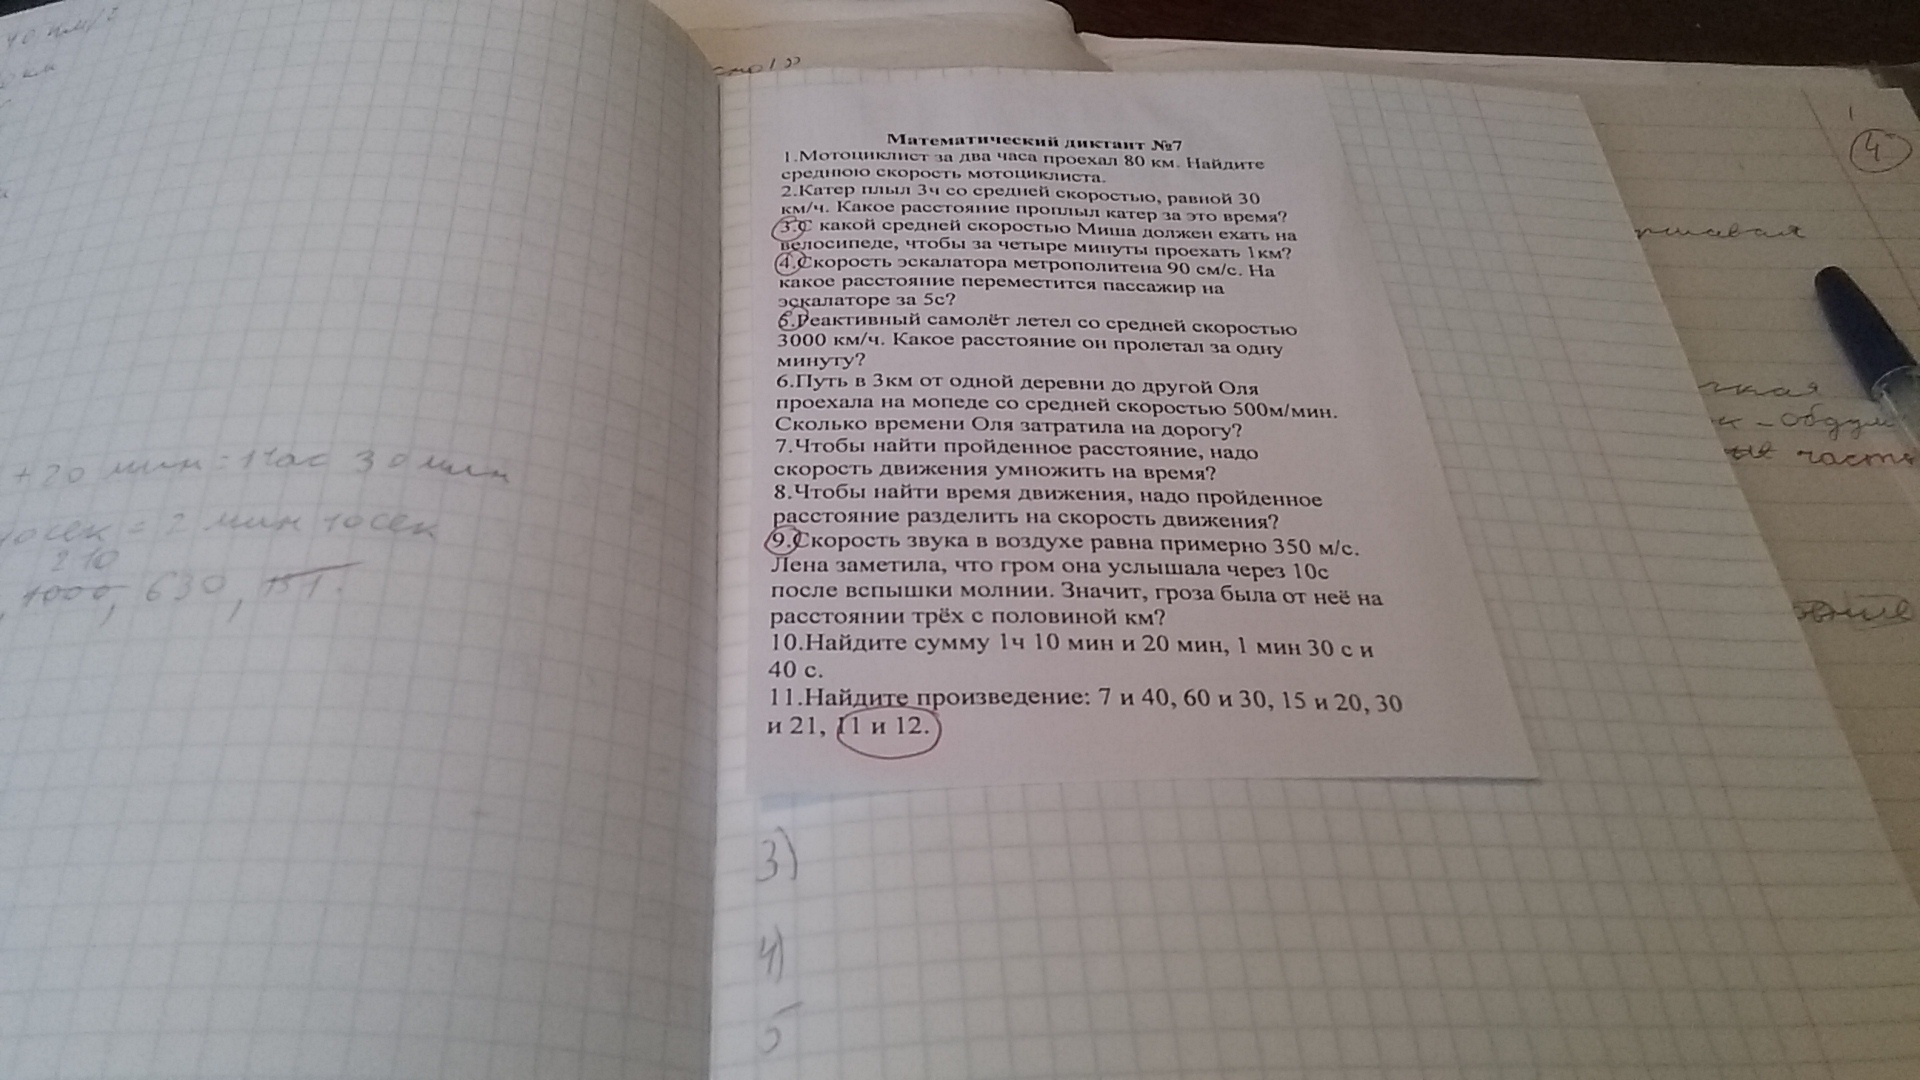 40 км/ч
км
+20 мин = 1 час 30 мин
40сек = 2 мин 10сек
210
1000, 630, 151.
Математический диктант №7
1.Мотоциклист за два часа проехал 80 км. Найдите
среднюю скорость мотоциклиста.
2.Катер плыл 3ч со средней скоростью, равной 30
км/ч. Какое расстояние проплыл катер за это время?
3.С какой средней скоростью Миша должен ехать на
велосипеде, чтобы за четыре минуты проехать 1км?
4.Скорость эскалатора метрополитена 90 см/с. На
какое расстояние переместится пассажир на
эскалаторе за 5с?
5.Реактивный самолёт летел со средней скоростью
3000 км/ч. Какое расстояние он пролетал за одну
минуту?
6.Путь в 3км от одной деревни до другой Оля
проехала на мопеде со средней скоростью 500м/мин.
Сколько времени Оля затратила на дорогу?
7.Чтобы найти пройденное расстояние, надо
скорость движения умножить на время?
8.Чтобы найти время движения, надо пройденное
расстояние разделить на скорость движения?
9.Скорость звука в воздухе равна примерно 350 м/с.
Лена заметила, что гром она услышала через 10с
после вспышки молнии. Значит, гроза была от неё на
расстоянии трёх с половиной км?
10.Найдите сумму 1ч 10 мин и 20 мин, 1 мин 30 с и
40 с.
11.Найдите произведение: 7 и 40, 60 и 30, 15 и 20, 30
и 21, 11 и 12.
3)
4)
5
4
часть